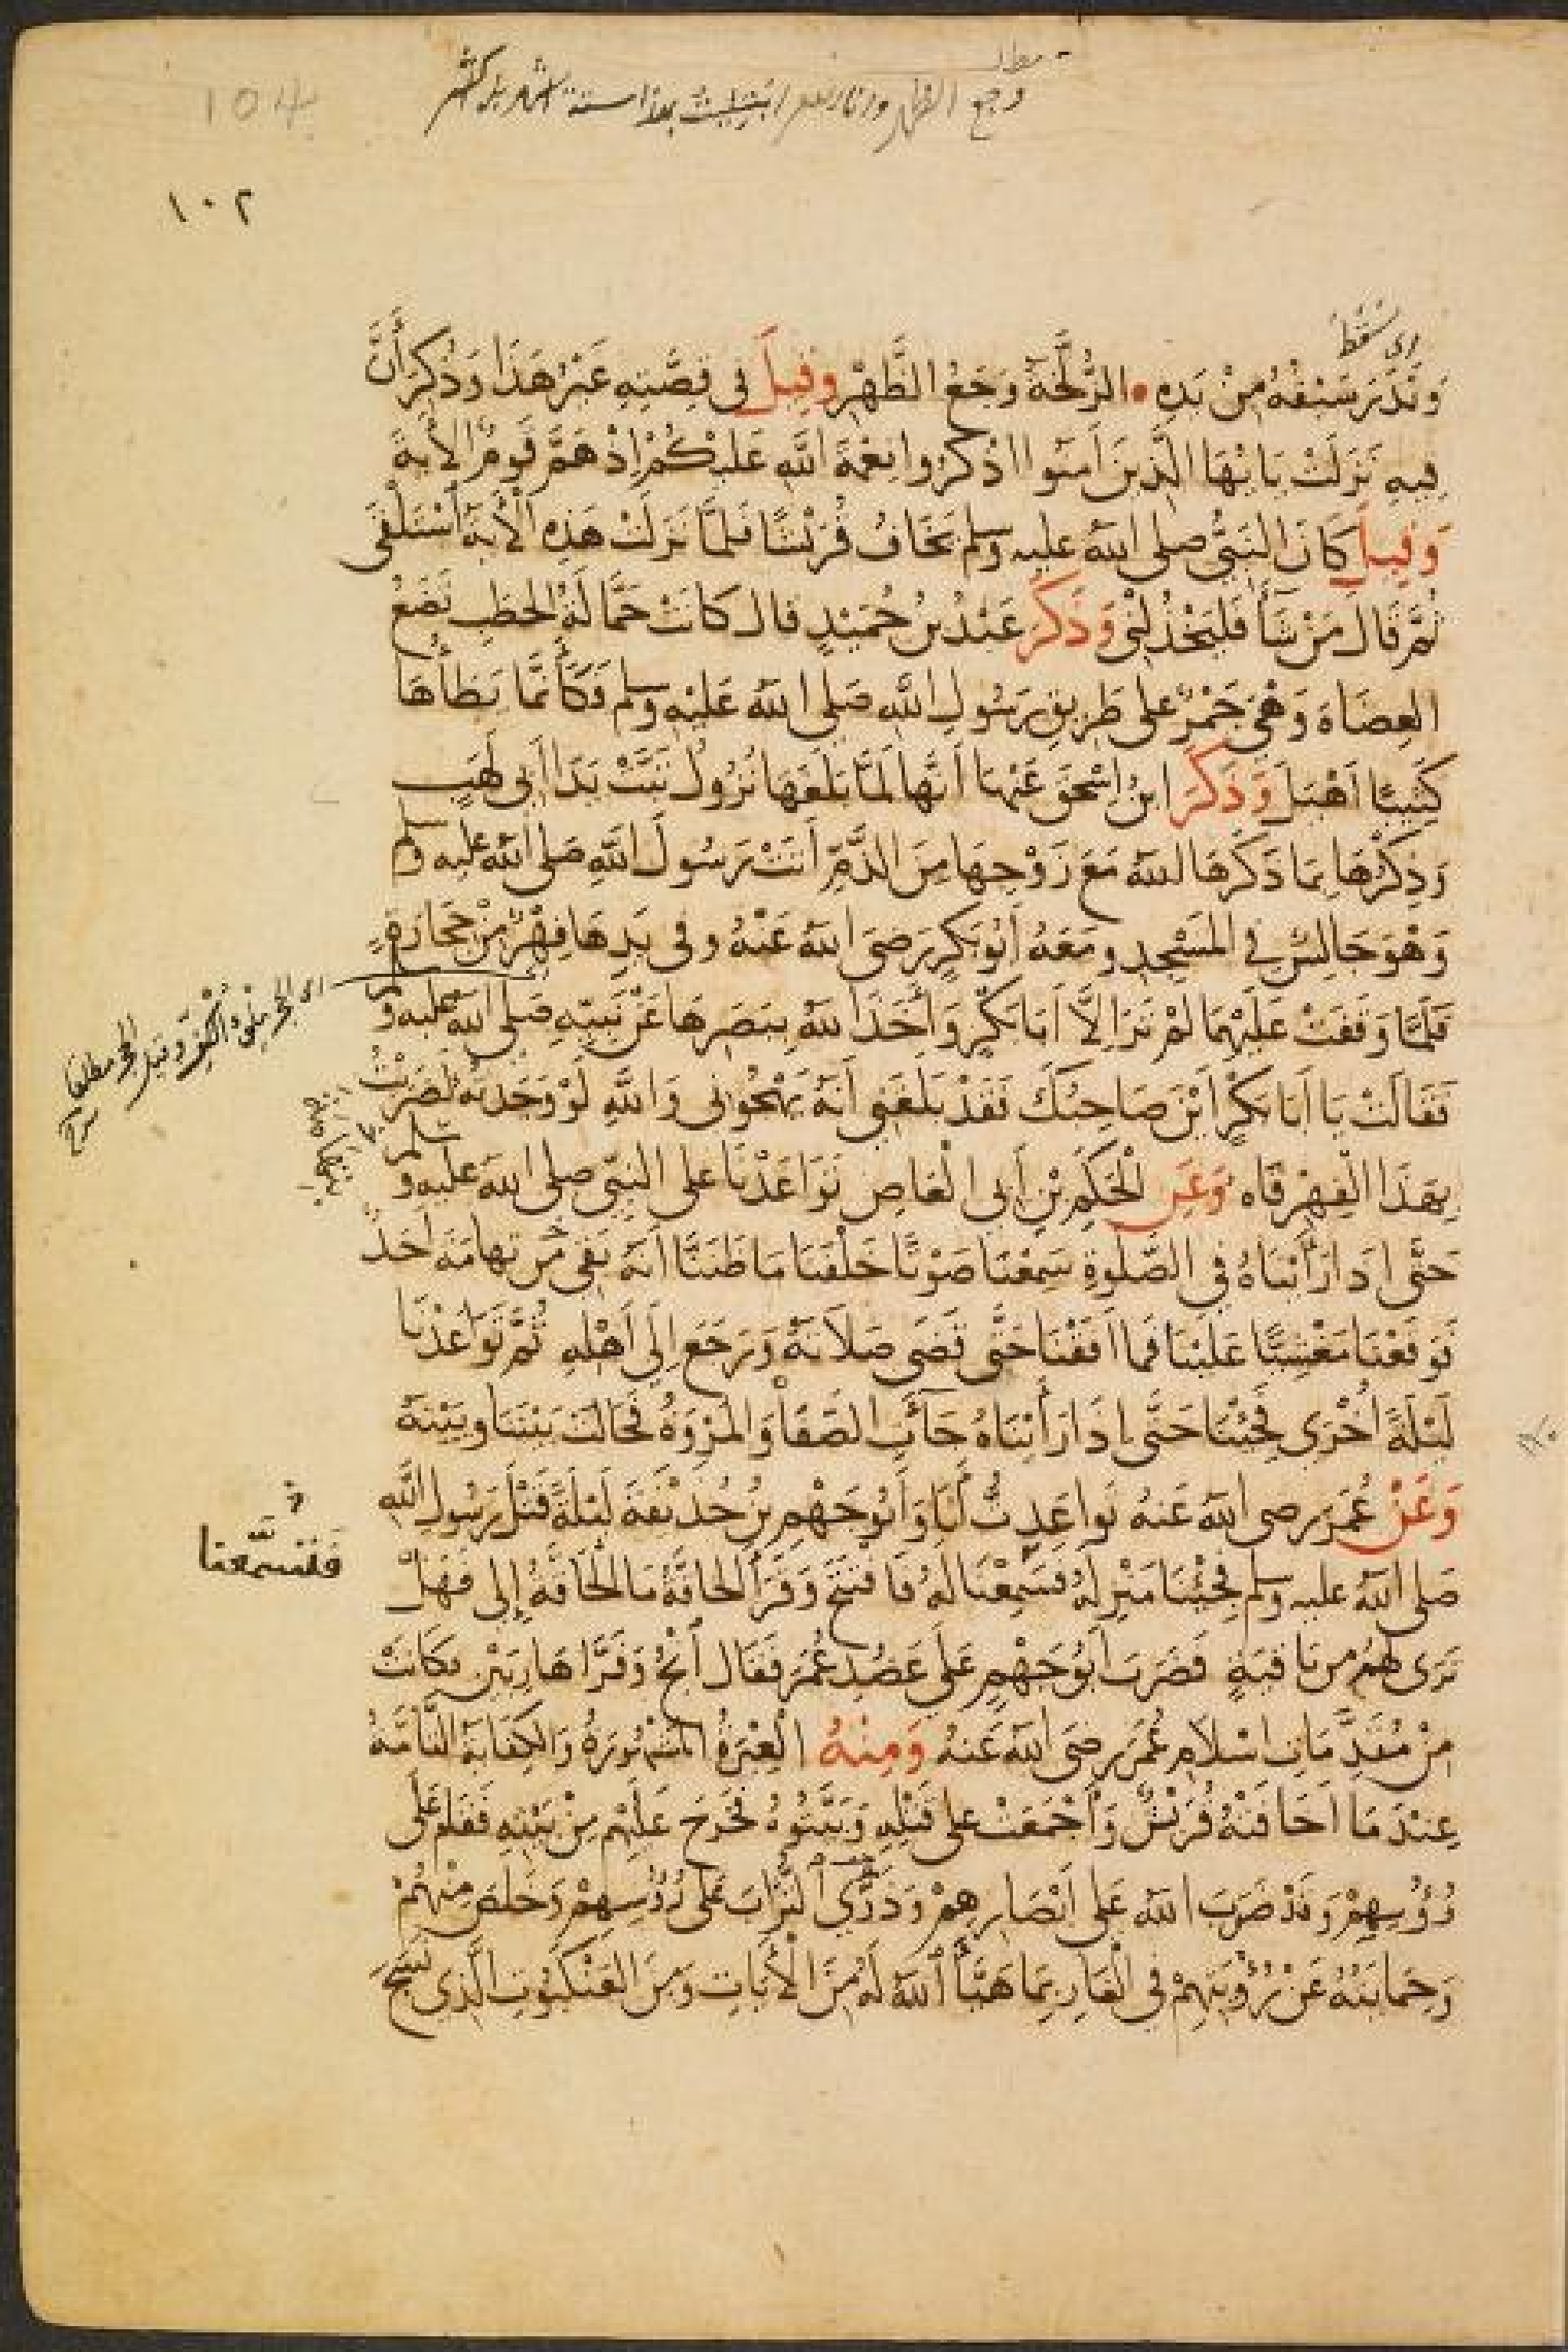 وجع الظهر
١٠٢
اى سقط
وَنَدَرَ سَيْفُهُ مِنْ يَدِهِ • الزُّلَّخَةُ وَجَعُ الظَّهْرِ وقِيلَ فى قِصَّتِهِ غَيْرُ هَذَا وَذُكِرَ أَنَّ
فِيهِ نَزَلَتْ يَا يُّهَا الَّذِينَ اَمَنُوا اذْكُرُوا نِعْمَةَ اللَّهِ عَلَيْكُمْ اِذْ هَمَّ قَومٌ الاٰيَةَ
وَقِيلَ كَانَ النَّبِىُّ صلى اللهُ عليه وسلم يَخَافُ قُرَيْشًا فَلَمَّا نَزَلَتْ هَذِهِ الْاٰيَةُ اسْتَلْقَى
ثُمَّ قَالَ مَنْ شَآءَ فَليَخْذُلْنِى وَذَكَرَ عَبْدُ بنُ حُمَيْدٍ قال كانَتْ حَمَّالَةُ الحَطَبِ تَضَعُ
العِضَاهَ وَهْىَ جَمْرٌ على طَرِيقِ رَسُولِ اللَّهِ صَلى اللهُ عَلَيْهِ وسلم فَكَأَنَّمَا يَطَأُهَا
كَثِيبًا اَهْيَلَ وَذَكَرَ ابنُ اِسْحَقَ عَنْهَا اَنَّهَا لَمَّا بَلَغَهَا نُزُولُ تَبَّتْ يَدَا اَبِى لَهَبٍ
وَذِكْرُهَا بِمَا ذَكَرَهَا اللهُ مَعَ زَوْجِهَا مِنَ الذَّمِّ اَتَتْ رَسُولَ اللَّهِ صَلى اللهُ عليه وسلم
وَهْوَ جَالِسٌ فى المَسْجِدِ ومَعَهُ اَبُو بَكرٍ رَضىَ اللهُ عَنْهُ وفى يَدِهَا فِهْرٌ مِنْ حِجَارَةٍ
اى الحجر ملء الكف وقيل الحجر مطلقا
فَلَمَّا وَقَفَتْ عَلَيْهِمَا لَمْ تَرَ اِلاَّ اَبَا بَكْرٍ وَاَخَذَ اللهُ بِبَصَرِهَا عَنْ نَبِيِّهِ صَلى اللهُ عليه وسلم
فَقَالَتْ يَا اَبَا بَكْرٍ اَيْنَ صَاحِبُكَ فَقَدْ بَلَغَنِى اَنَّهُ يَهْجُونِى وَاللَّهِ لَوْ وَجَدْتُهُ لَضَرَبْتُ
بِهَذَا الْفِهْرِ فَاه وَعَنِ الْحَكَمِ بْنِ أَبِى الْعَاصِ تَوَاعَدْنَا على النبىِّ صلى اللهُ عليه وسلم
حَتَّى اِذَا رَأَيْنَاهُ فى الصَّلٰوةِ سَمِعْنَا صَوْتًا خَلْفَنَا مَا ظَنَنَّا اَنَّهُ بَقِىَ من تهامَةَ اَحَدٌ
فَوَقَعْنَا مَغْشِيًّا عَلَيْنَا فَمَا اَفَقْنَا حَتَّى قَضَى صَلَاتَهُ وَرَجَعَ اِلَى اَهْلِهِ ثُمَّ تَوَاعَدْنَا
لَيْلَةً اُخْرَى فَجِئْنَا حَتَّى اِذَا رَأَيْنَاهُ جَآءَتِ الصَّفَا وَالمَرْوَةُ فَحَالَتْ بَيْنَنَا وبَيْنَهُ
وَعَنْ عُمَرَ رضى اللهُ عَنهُ تَوَاعَدتُ أَنَا وَاَبُو جَهْمِ بنُ حُذَيْفَةَ لَيْلَةً قَتْلَ رَسُولِ اللَّهِ
صَلى اللهُ عليه وسلم فَجِئْنَا مَنْزِلَهُ فَسَمِعْنَا لَهُ فَافْتَتَحَ وَقَرَأَ الْحَاقَّةُ مَا الْحَاقَّةُ اِلى فَهَلْ
فتسمّعنا
تَرَى لَهُمْ من بَاقِيَةٍ فَضَرَبَ اَبُو جَهْمٍ عَلَى عَضُدِ عُمَرَ فَقَالَ اُنْجُ وَفَرَّا هَارِبَيْنِ فكَانَتْ
مِنْ مُقَدِّمَاتِ اسْلَامِ عُمَرَ رضىَ اللهُ عَنهُ وَمِنْهُ الْعِبْرَةُ المَشْهُورَةُ وَالكِفَايَةُ التَّامَّةُ
عِنْدَ مَا اَخَافَتْهُ قُرَيْشٌ وَاَجْمَعَتْ على قَتْلِهِ وَبَيَّتُوهُ فَخَرَجَ عَلَيْهِمْ مِنْ بَيْتِهِ فَقَامَ عَلَى
رُؤُسِهِمْ وَقَدْ ضَرَبَ اللهُ عَلى اَبْصَارِهِمْ وَذَرَّى التُّرَابَ عَلى رُؤُسِهِمْ وَخَلَصَ مِنْهُمْ
وَحِمَايَتُهُ عَنْ رُؤْيَتِهِمْ فى الْغَارِ بِمَا هَيَّأَ اللهُ لَهُ مِنَ الْاٰيَاتِ وَمِنَ العَنْكَبُوتِ الَّذِى نَسَجَ